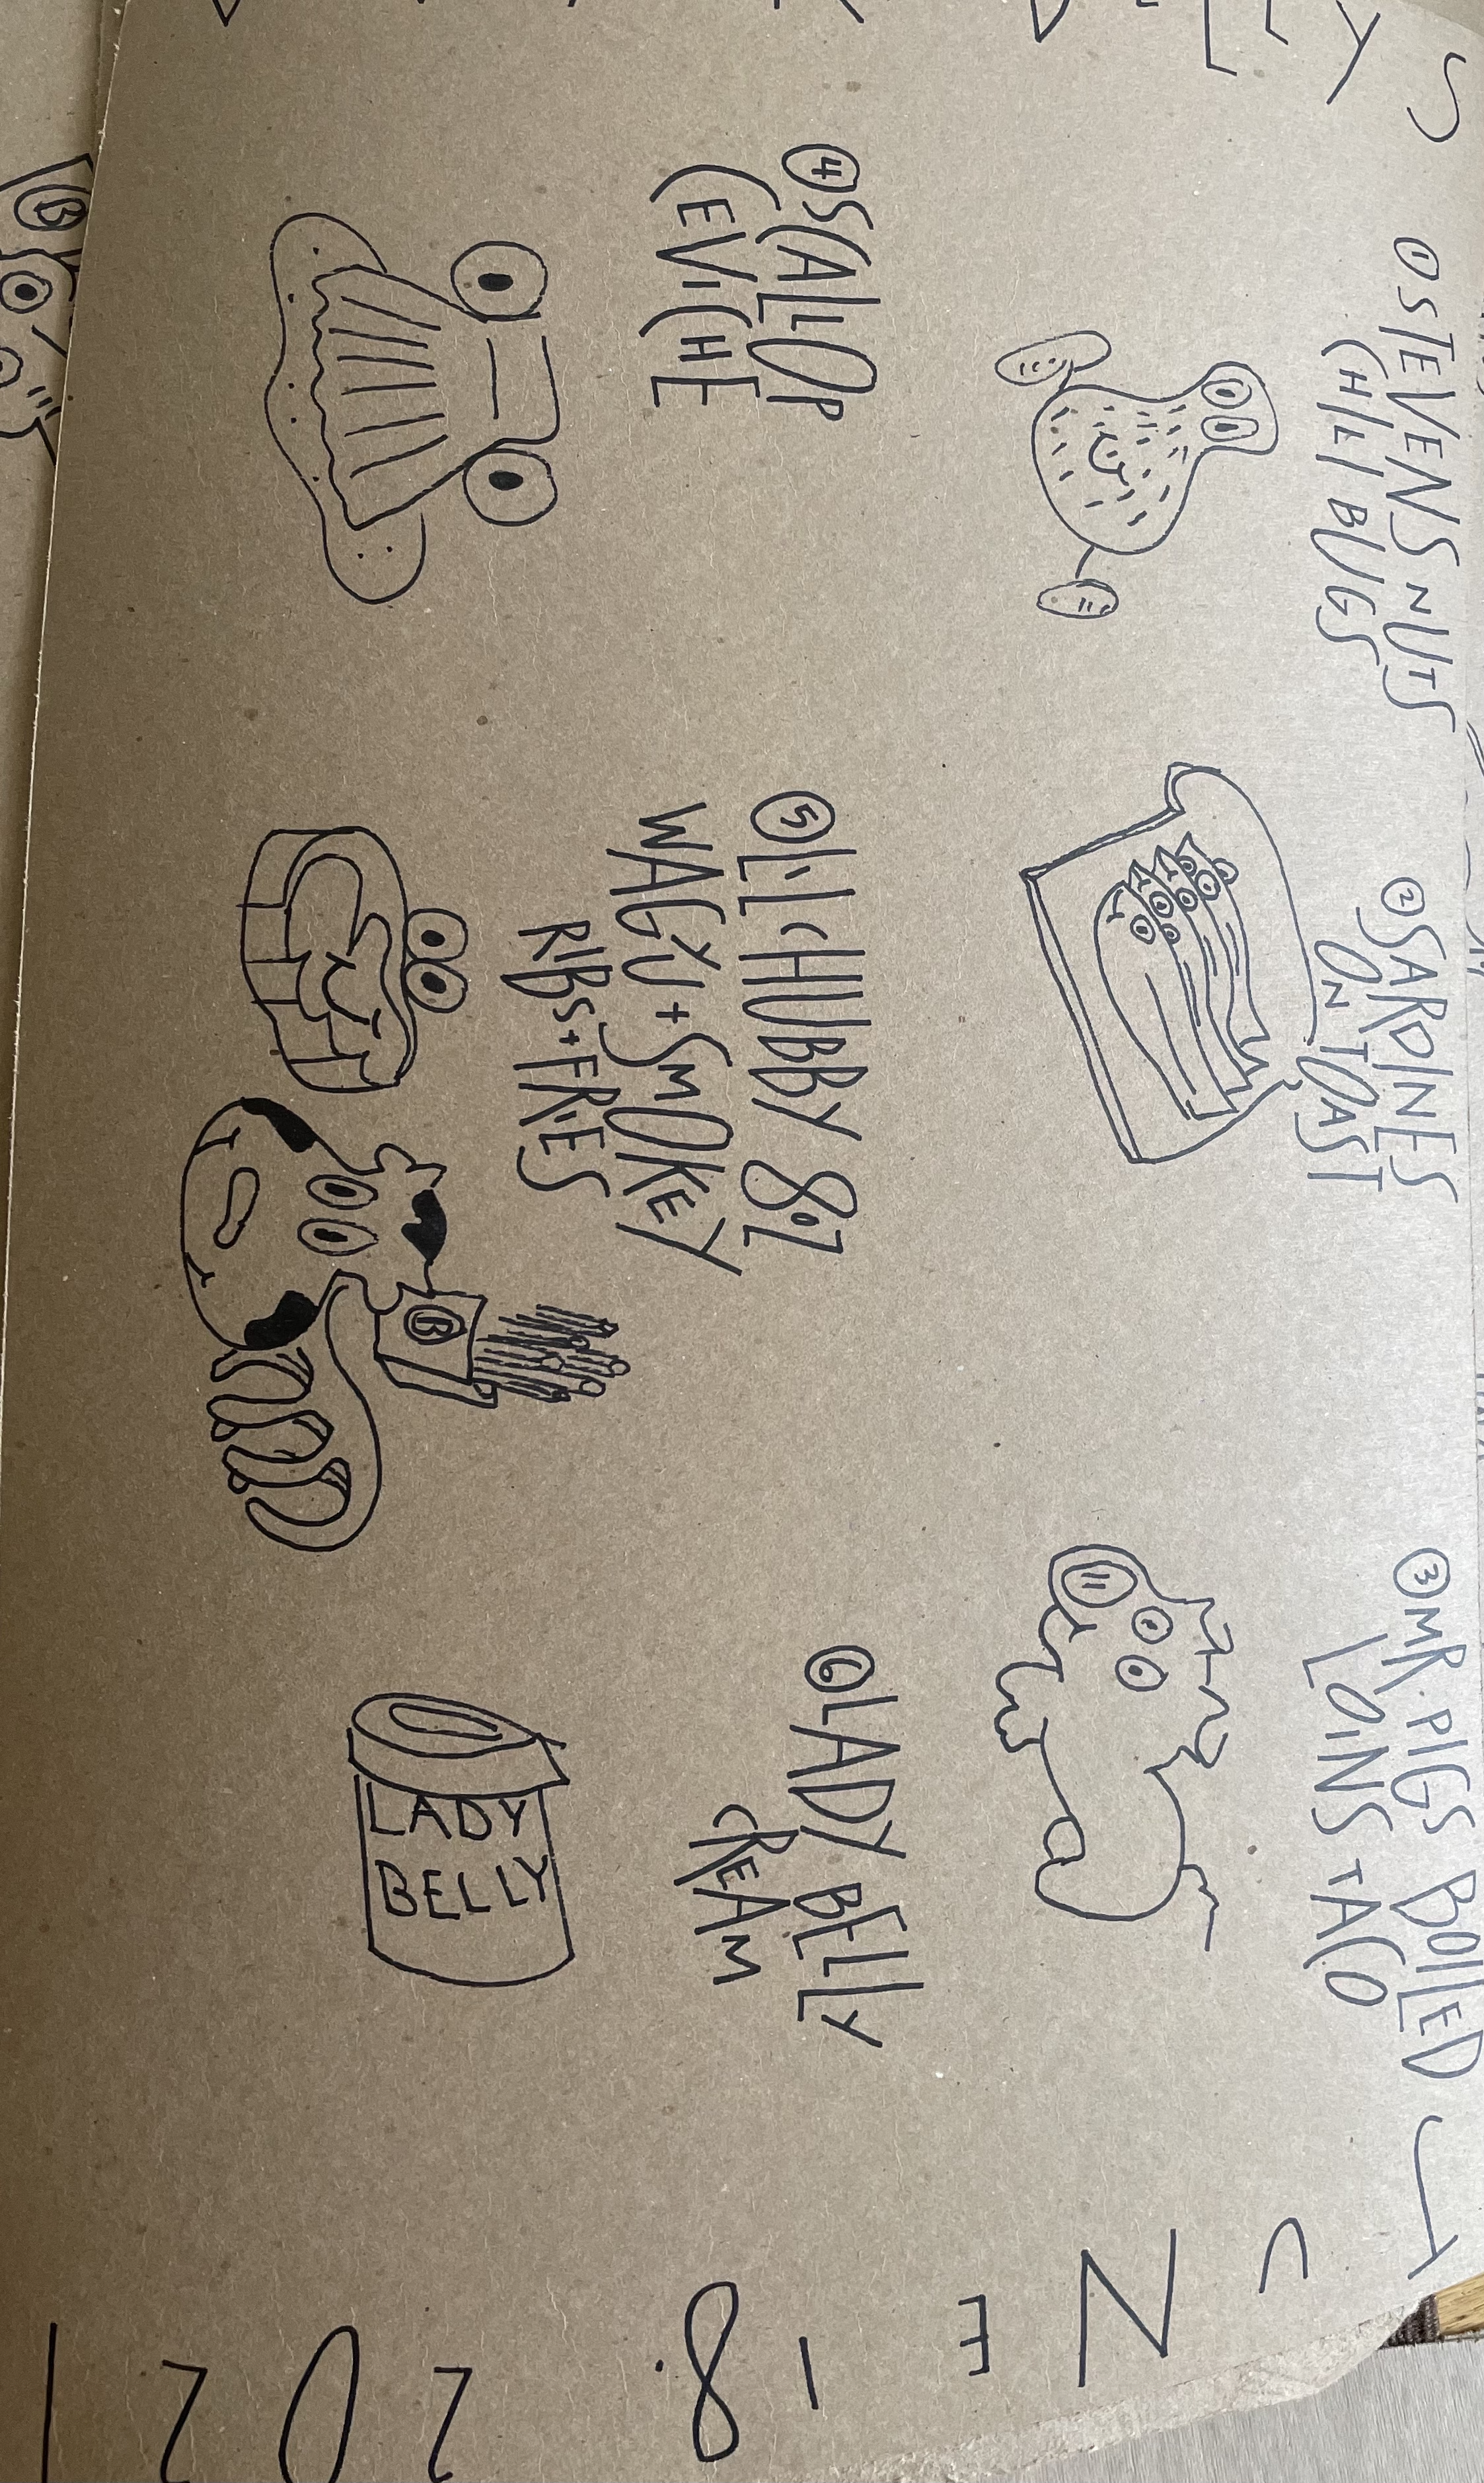 ① STEVENS NUTS
CHILI BUGS
② SARDINES
ON TOAST
③ MR. PIGS BOILED
LOINS TACO
④ SCALLOP
CEVICHE
⑤ LIL CHUBBY 8oz
WAGYU + SMOKEY
RIBS + FRIES
B
⑥ LADY BELLY
CREAM
LADY
BELLY
B
JUNE 18. 2021